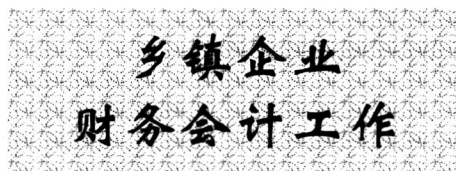 乡镇企业
财务会计工作